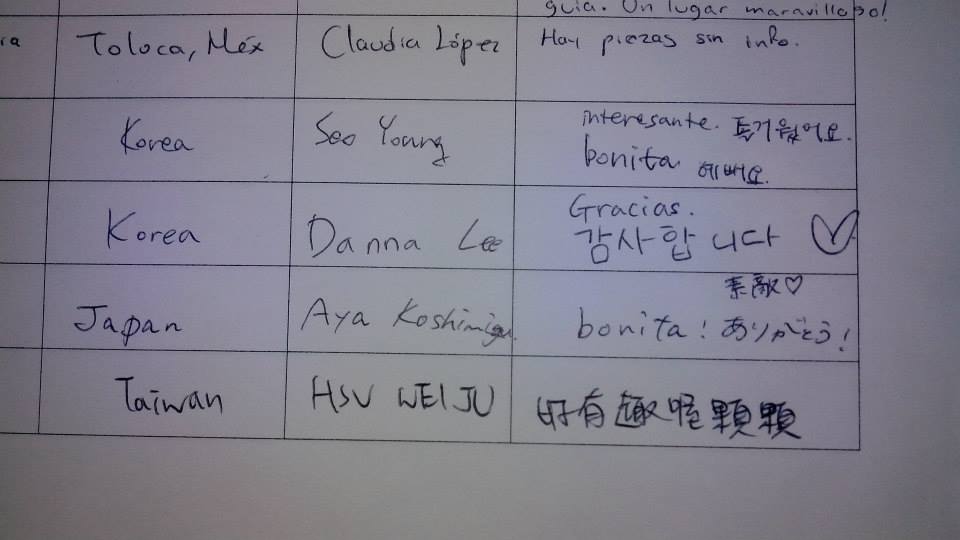 guía. Un lugar maravilloso!
Toloca, Méx Claudia López Hay piezas sin info.
Korea Seo Young interesante. 즐거웠어요.
bonita 예뻐요.
Korea Danna Lee Gracias.
감사합니다 ♡
素敵♡
Japan Aya Koshimizu bonita! ありがとう!
Taiwan HSU WEI JU 好有趣喔顆顆